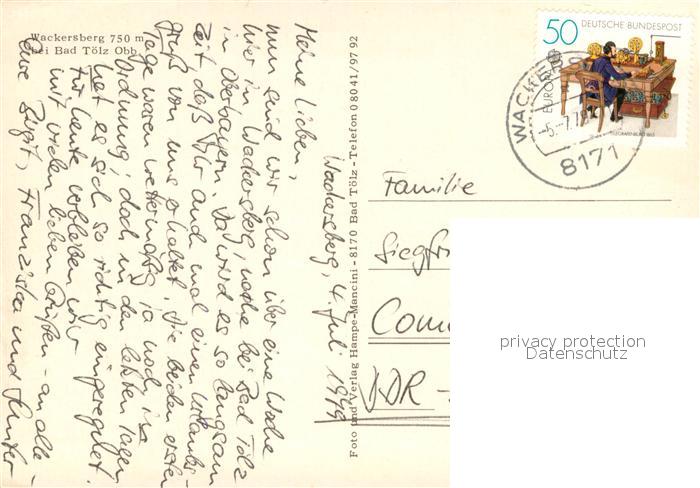 Wackersberg 750 m
bei Bad Tölz Obb.
Wackersberg, 4. Juli 1979
Meine Lieben,
nun sind wir schon über eine Woche
hier in Wackersberg, nahe bei Bad Tölz
in Oberbayern. Da wird es so langsam
Zeit, daß Ihr auch mal einen Urlaubs-
gruß von uns erhaltet. Die beiden ersten
Tage waren wettermäßig ja noch in
Ordnung, doch in den letzten Tagen
hat es sich so richtig eingeregnet.
Für heute verbleiben wir
mit vielen lieben Grüßen - an alle -
Eure Birgit, Franziska und
Foto und Verlag Hampe-Mancini - 8170 Bad Tölz - Telefon 08041/97 92
50 DEUTSCHE BUNDESPOST
EUROPA
WACKE
-5.-7.7
8171
Familie
Siegfr
DDR-
privacy protection
Datenschutz